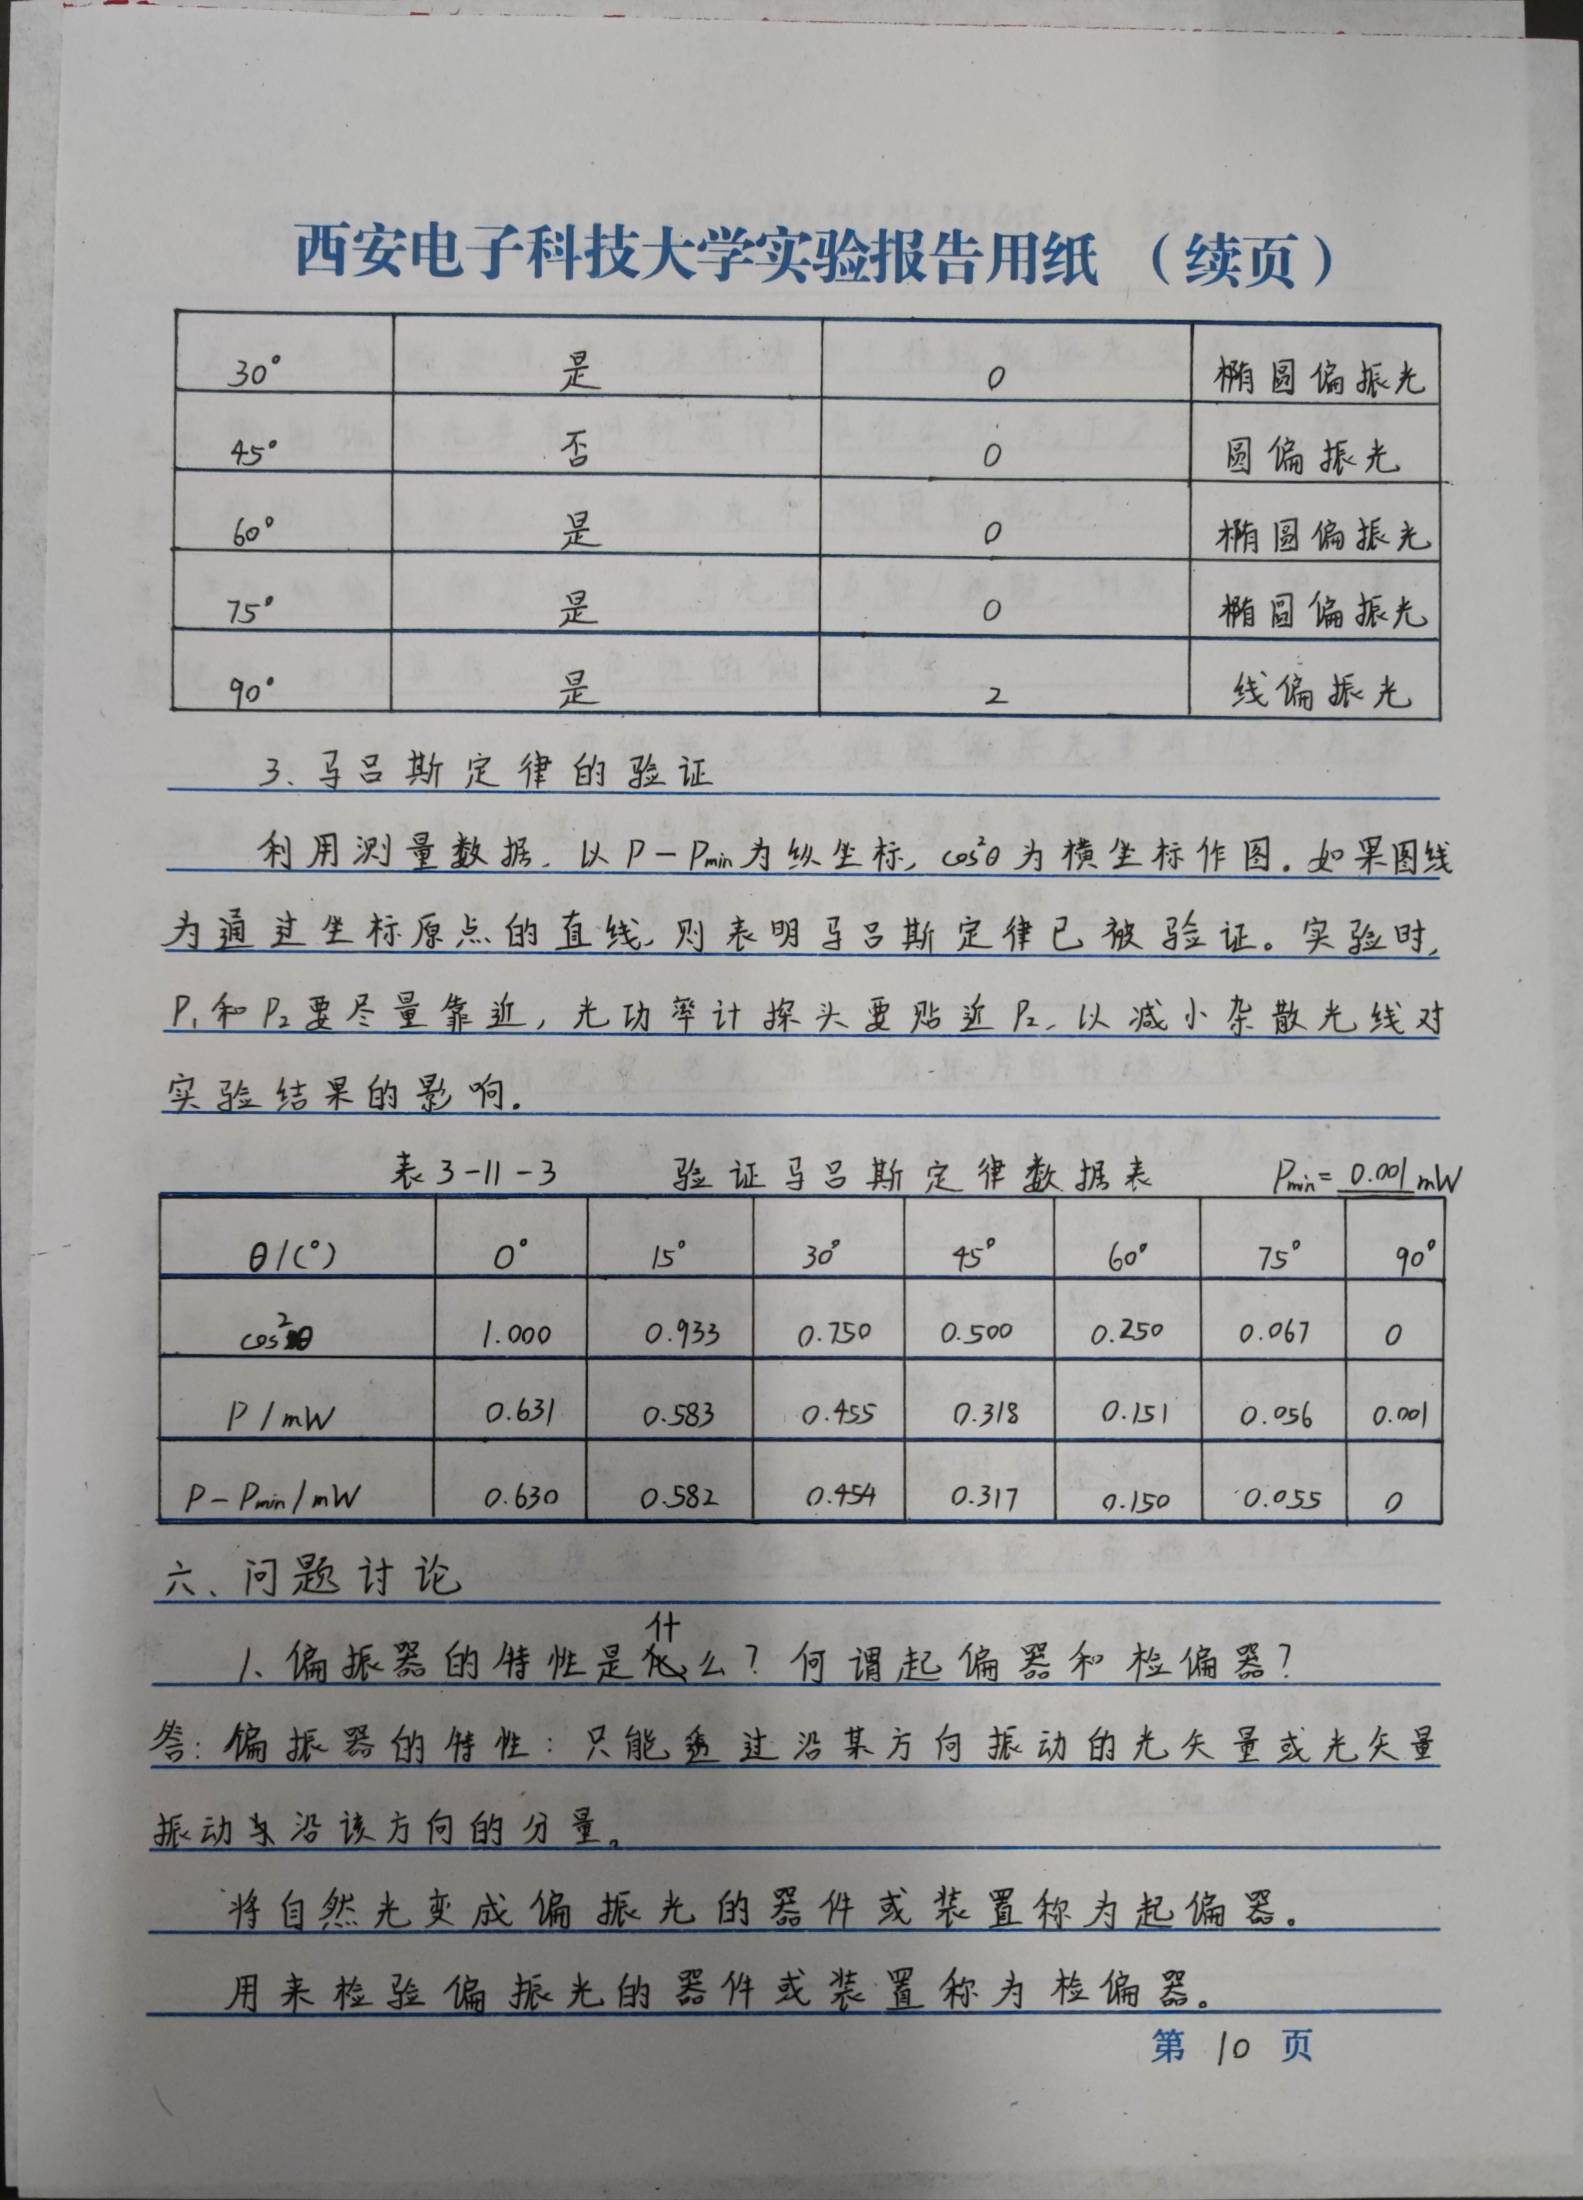 西安电子科技大学实验报告用纸 （续页）
30° 是 0 椭圆偏振光
45° 否 0 圆偏振光
60° 是 0 椭圆偏振光
75° 是 0 椭圆偏振光
90° 是 2 线偏振光
3、马吕斯定律的验证
利用测量数据，以P－Pmin为纵坐标，cos²θ为横坐标作图。如果图线
为通过坐标原点的直线，则表明马吕斯定律已被验证。实验时，
P₁和P₂要尽量靠近，光功率计探头要贴近P₂，以减小杂散光线对
实验结果的影响.
表3-11-3 验证马吕斯定律数据表 Pmin=0.001mW
θ/(°) 0° 15° 30° 45° 60° 75° 90°
cos²θ 1.000 0.933 0.750 0.500 0.250 0.067 0
P/mW 0.631 0.583 0.455 0.318 0.151 0.056 0.001
P－Pmin/mW 0.630 0.582 0.454 0.317 0.150 0.055 0
六、问题讨论
1、偏振器的特性是什么？何谓起偏器和检偏器？
答：偏振器的特性：只能透过沿某方向振动的光矢量或光矢量
振动沿该方向的分量。
将自然光变成偏振光的器件或装置称为起偏器。
用来检验偏振光的器件或装置称为检偏器。
第 10 页